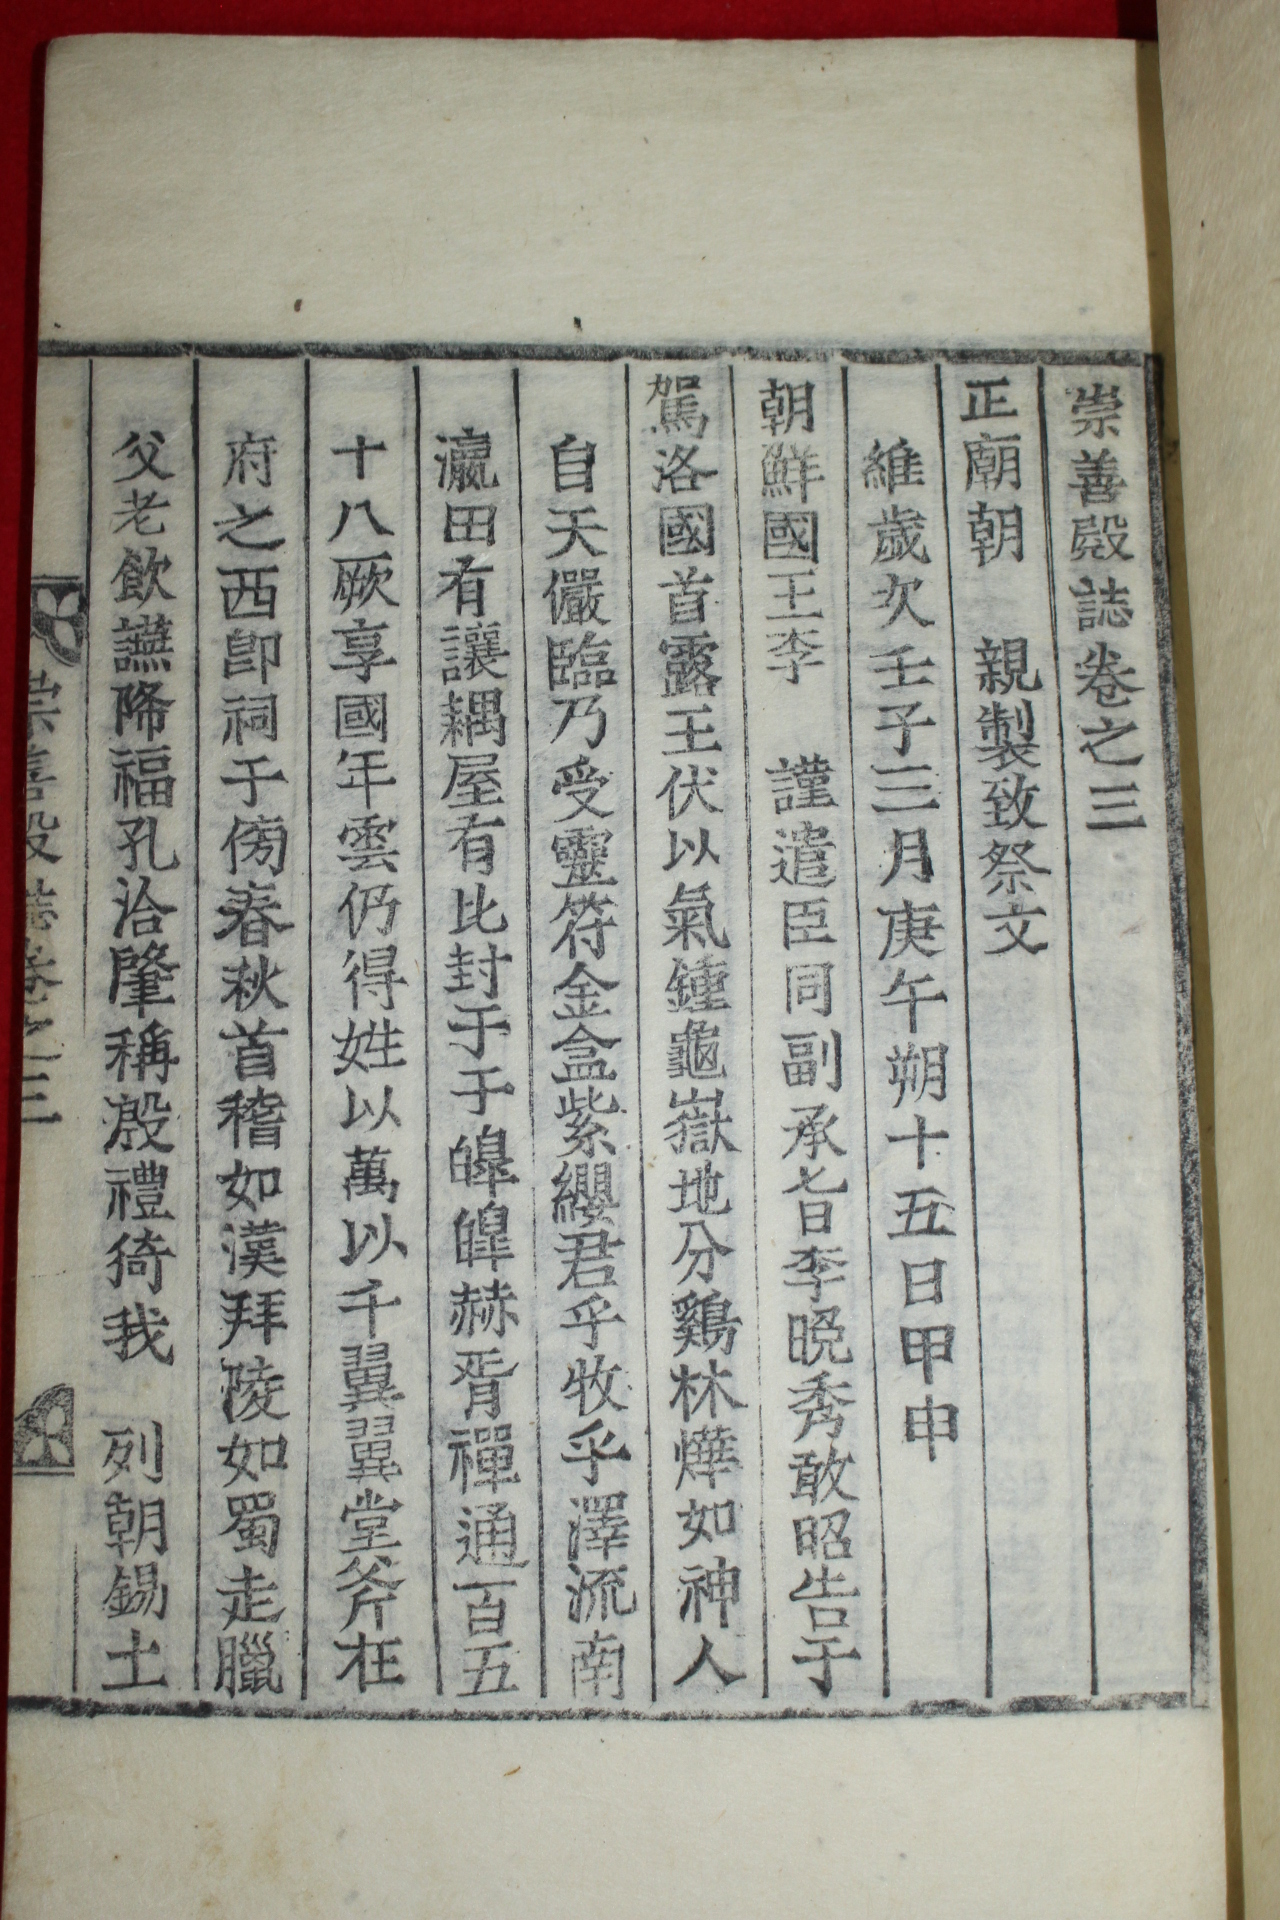 崇善殿誌卷之三
正廟朝　親製致祭文
維歲次壬子三月庚午朔十五日甲申
朝鮮國王李　謹遣臣同副承旨李晩秀敢昭告于
駕洛國首露王伏以氣鍾龜嶽地分鷄林燁如神人
自天儼臨乃受靈符金盒紫纓君乎牧乎澤流南
瀛田有讓耦屋有比封于于皥皥赫胥禪通百五
十八厥享國年雲仍得姓以萬以千翼翼堂斧在
府之西卽祠于傍春秋首稽如漢拜陵如蜀走臘
父老飮讌降福孔洽肇稱殷禮猗我　列朝錫土
崇善殿誌卷之三